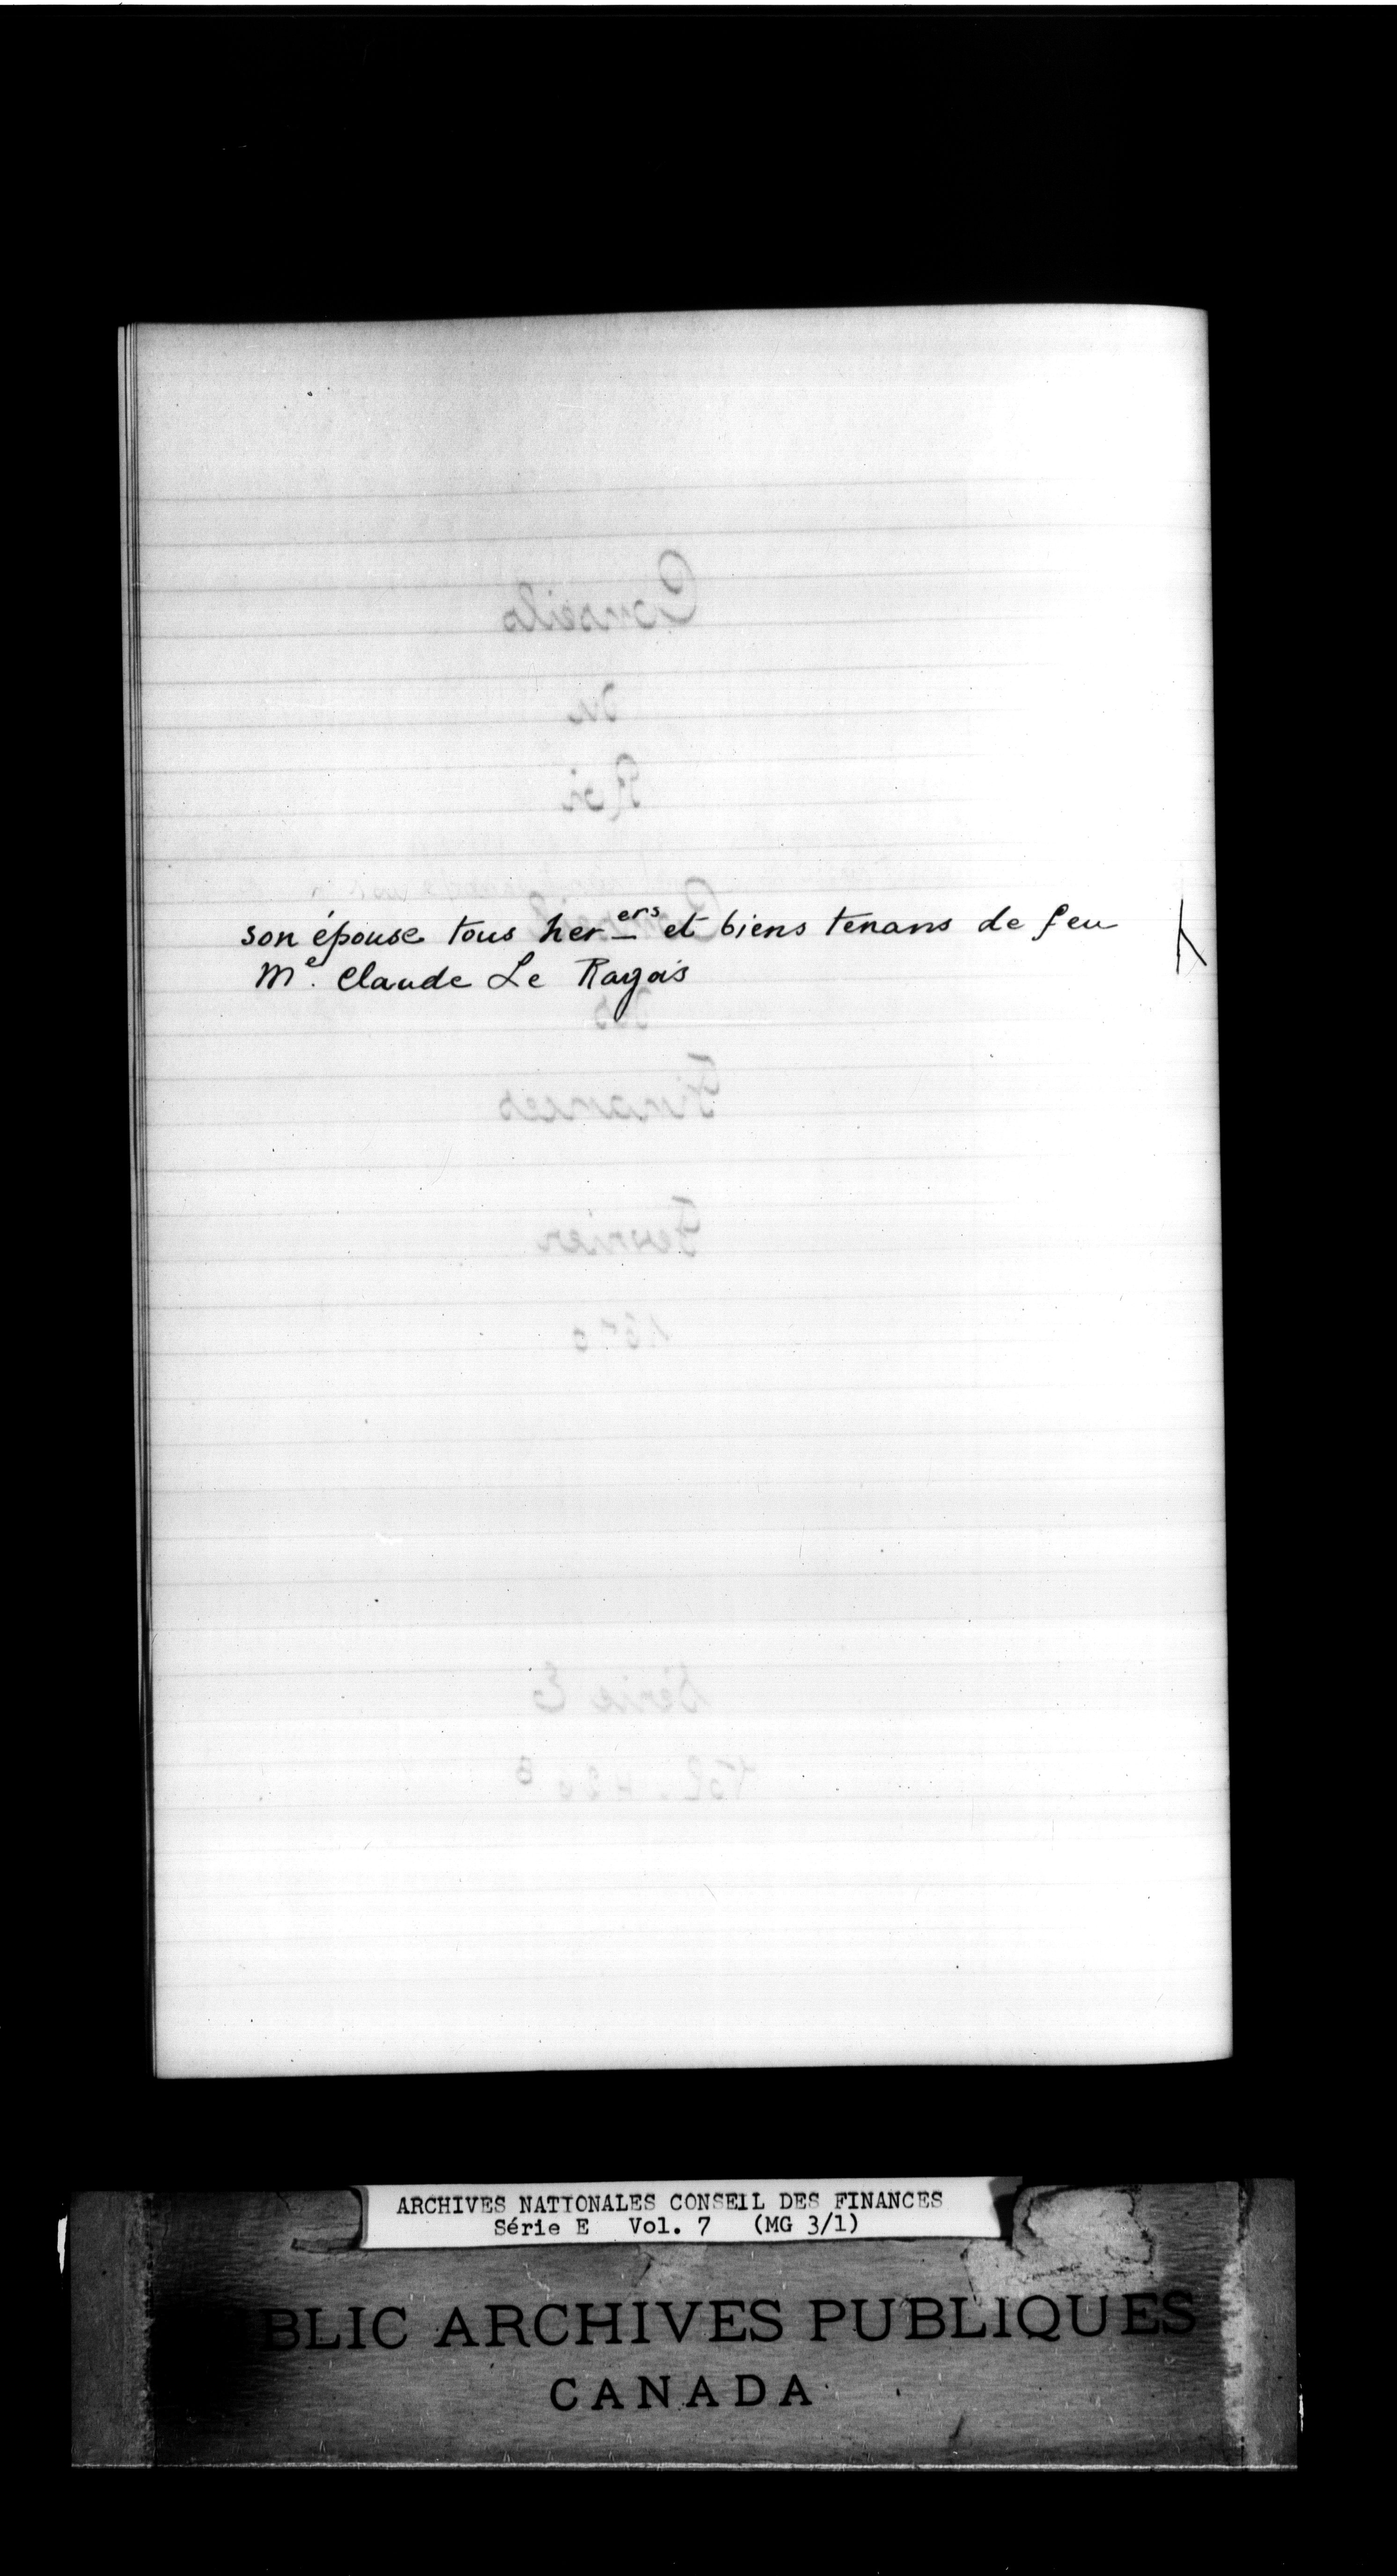 son épouse tous her ers et biens tenans de feu
Me. Claude Le Ragois
ARCHIVES NATIONALES CONSEIL DES FINANCES
Série E Vol. 7 (MG 3/1)
BLIC ARCHIVES PUBLIQUES
CANADA